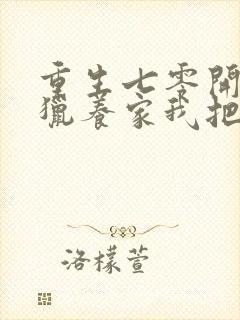 重生七零開
獵養家我把
洛檬萱